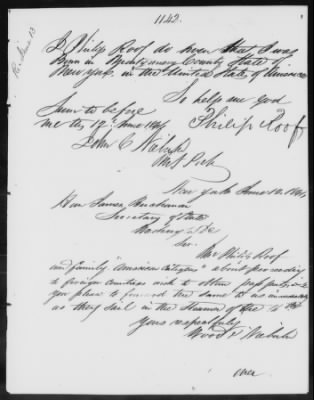 1142
I Philip Roof do swear that I was
Born in Montgomery County State of
New York, in the United States of America
So help me God
Philip Roof
Sworn to before
me this 12th June 1846
John C
New York June 12. 1846
Hon James Buchanan
Secretary of State
Sir
Mr Philip Roof
and family "American Citizens" about proceeding
to foreign countries wish to obtain passports
you please to forward the same to us immediately
as they sail in the Steamer of the
Yours respectfully
over